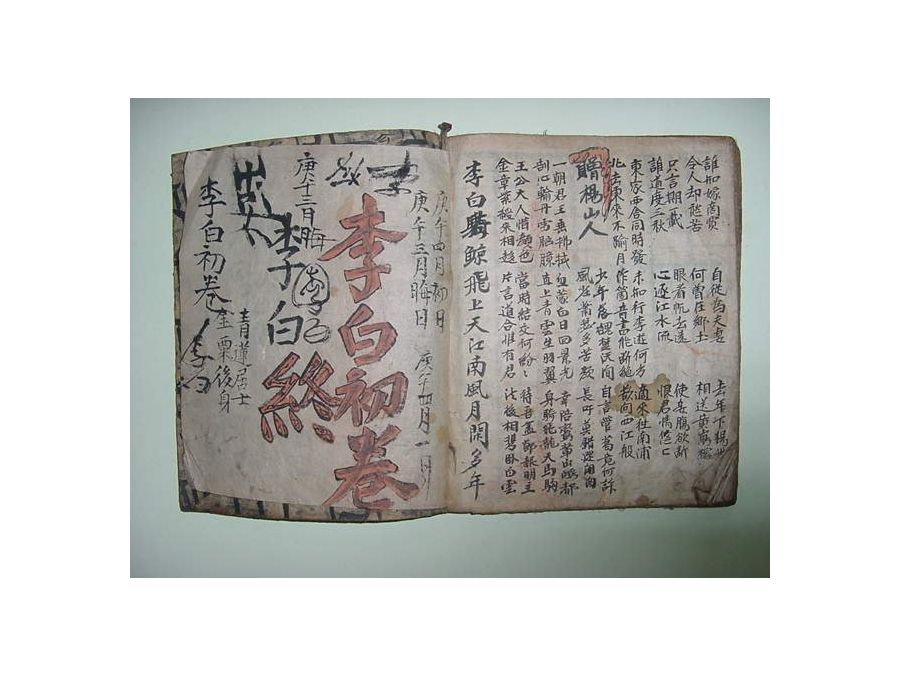 誰知嫁商賈 自從為夫妻 去年下揚州
令人却愁苦 何曾在鄉土 相送黃鶴樓
只言期一載 眼看帆去遠 使妾腸欲斷
誰道度三秋 心逐江水流 恨君情悠〻
東家西舍同時發 未知行李遊何方 適來往南浦
北去東來不踰月 作箇音書能斷絶 欲向西江船
贈楊山人 少年落魄楚民間 自言管葛竟何許
風塵蕭瑟多苦顔 長吁莫錯還閉關
一朝君王垂拂拭 忽蒙白日回景光 幸陪鸞輦出鴻都
剖心輸丹雪胸臆 直上青雲生羽翼 身騎飛龍天馬駒
王公大人借顔色 當時結交何紛〻 待吾盡節報明主
金章紫綬來相趨 片言道合惟有君 此後相携臥白雲
李白騎鯨飛上天江南風月閑多年
庚午四月初日
庚午三月晦日 庚午四月一日
李白初卷
庚午三月晦
李白終
李白初卷
青蓮居士
金粟後身
李白